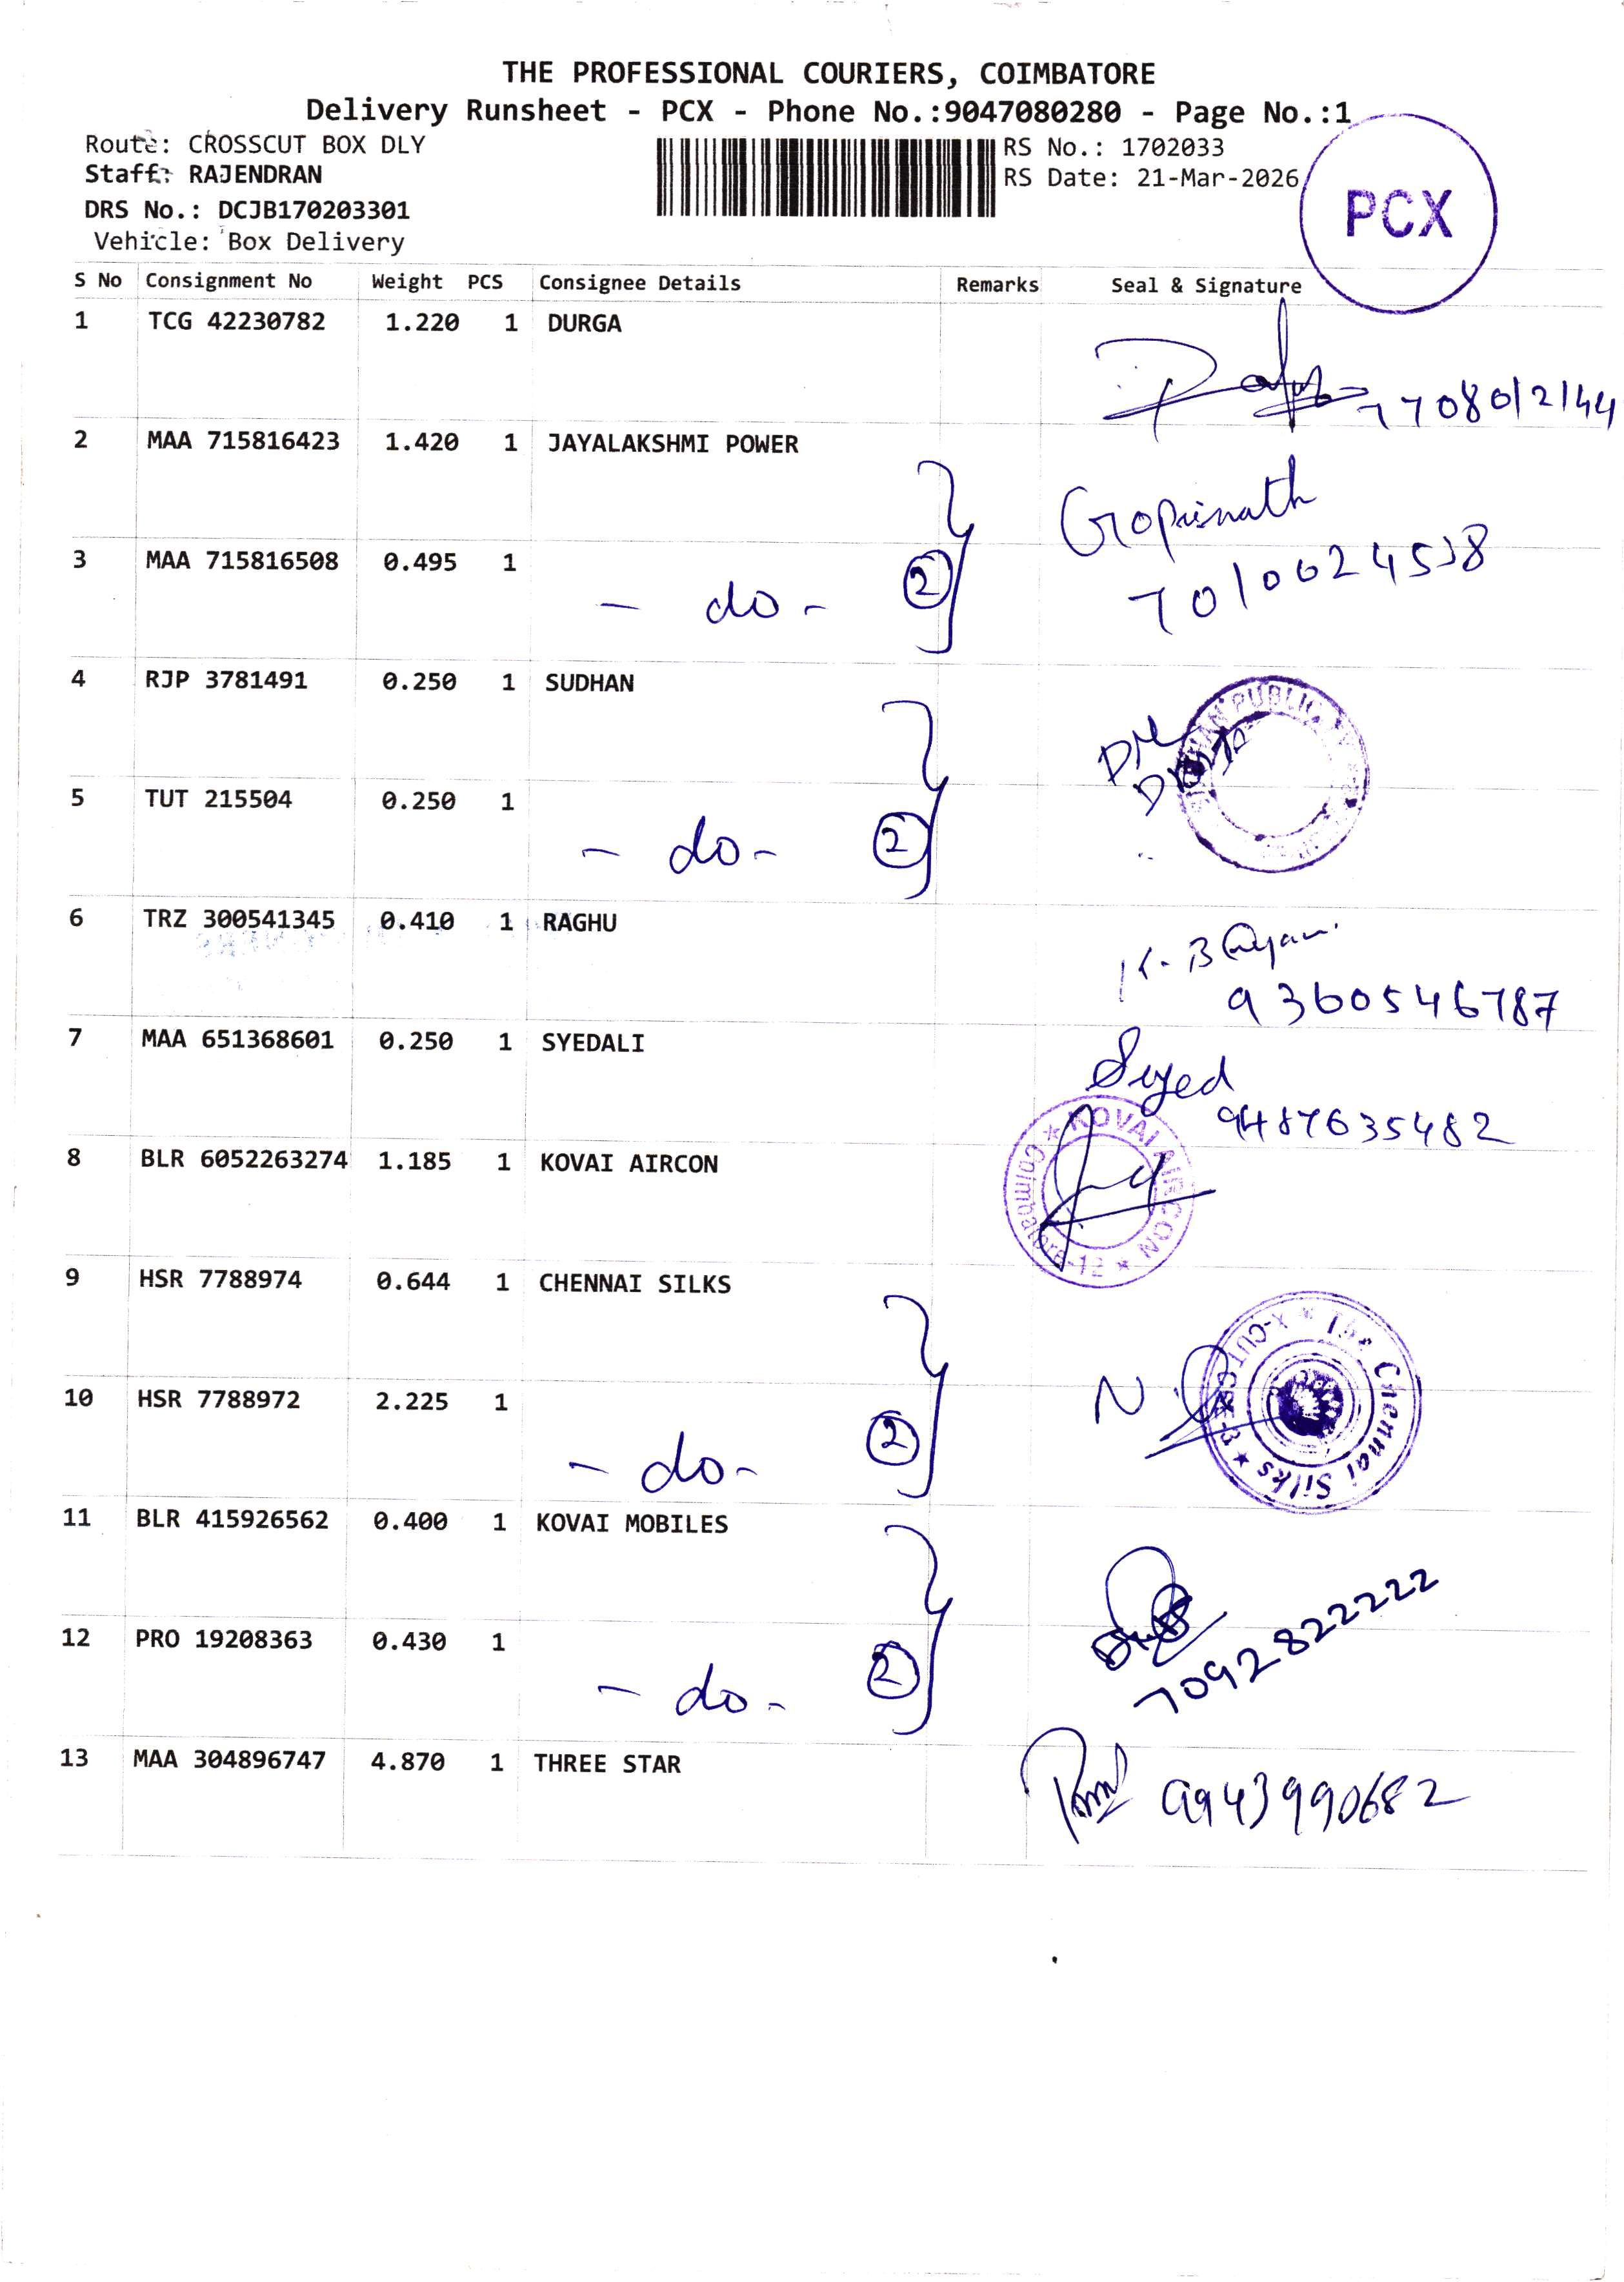 THE PROFESSIONAL COURIERS, COIMBATORE
Delivery Runsheet - PCX - Phone No.:9047080280 - Page No.:1
Route: CROSSCUT BOX DLY
RS No.: 1702033
Staff: RAJENDRAN
RS Date: 21-Mar-2026
PCX
DRS No.: DCJB170203301
Vehicle: Box Delivery
S No Consignment No Weight PCS Consignee Details Remarks Seal & Signature
1 TCG 42230782 1.220 1 DURGA
7708012144
2 MAA 715816423 1.420 1 JAYALAKSHMI POWER
Gopinath
3 MAA 715816508 0.495 1
- do - 2
4 RJP 3781491 0.250 1 SUDHAN
5 TUT 215504 0.250 1
- do - 2
6 TRZ 300541345 0.410 1 RAGHU
9360546787
7 MAA 651368601 0.250 1 SYEDALI
Syed
9487635482
8 BLR 6052263274 1.185 1 KOVAI AIRCON
★ KOVAI AIRCON ★ Coimbatore-12
9 HSR 7788974 0.644 1 CHENNAI SILKS
The Chennai Silks ★ X-CUT CBE-3
10 HSR 7788972 2.225 1
- do - 2
11 BLR 415926562 0.400 1 KOVAI MOBILES
7092822222
12 PRO 19208363 0.430 1
- do - 2
13 MAA 304896747 4.870 1 THREE STAR
9943990682